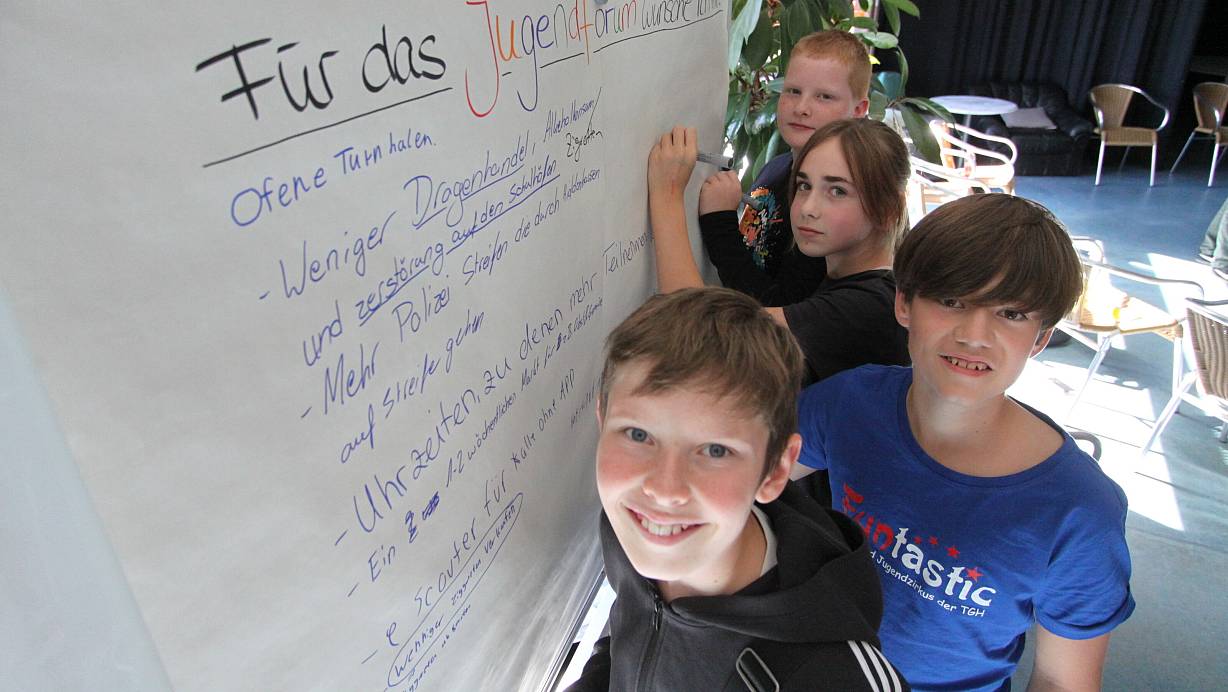 Für das Jugendforum wünsche ich mir
Ofene Turnhalen.
- Weniger Drogenhandel, Alkoholkonsum/
Zigretten
und zerstörung auf den Schulhöfen
- Mehr Polizei Streifen die durch
auf streife gehen
- Uhrzeiten, zu denen mehr Teilnehmen
- Ein 1-2 wöchentlichen Markt für
- e scouter für Kulle ohne APP
(wenniger Ziggaretten verkaufen)
Funtastic
d Jugendzirkus der TGH